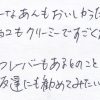 なあんもおいしかっ
コもクリーミーですごく
フレーバーもあるとのこと
友達にも勧めてみたい